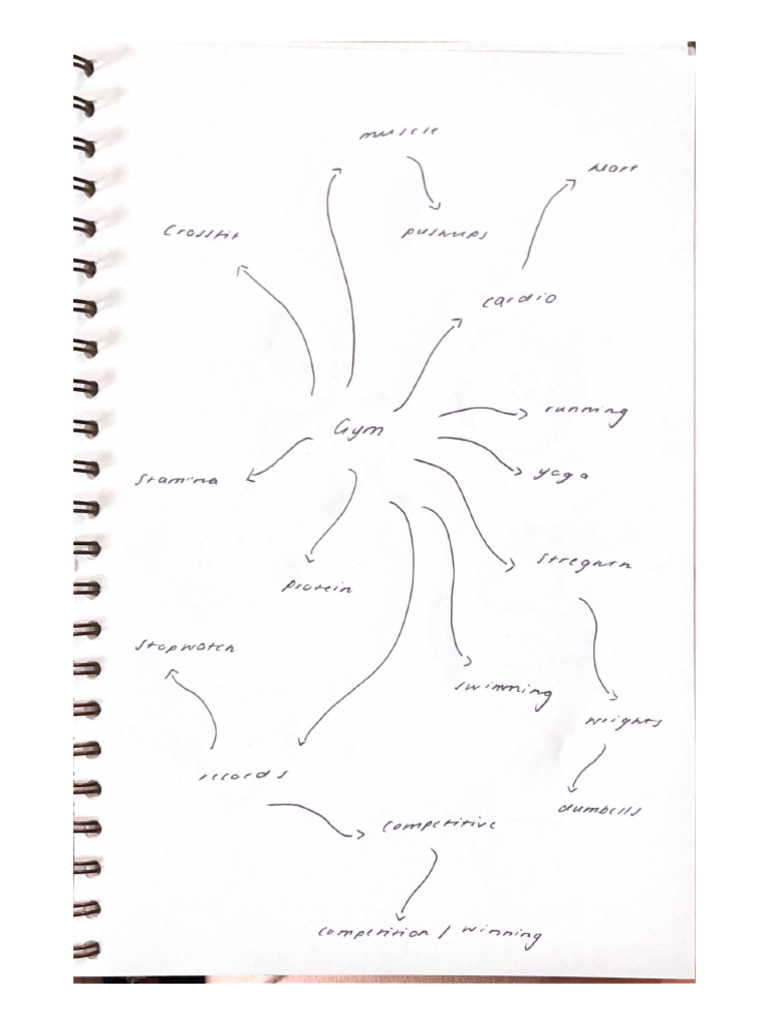 muscle
heart
Crossfit
pushups
cardio
running
Gym
yoga
stamina
stregnth
protein
stopwatch
swimming
weights
records
dumbells
competitive
competition / winning